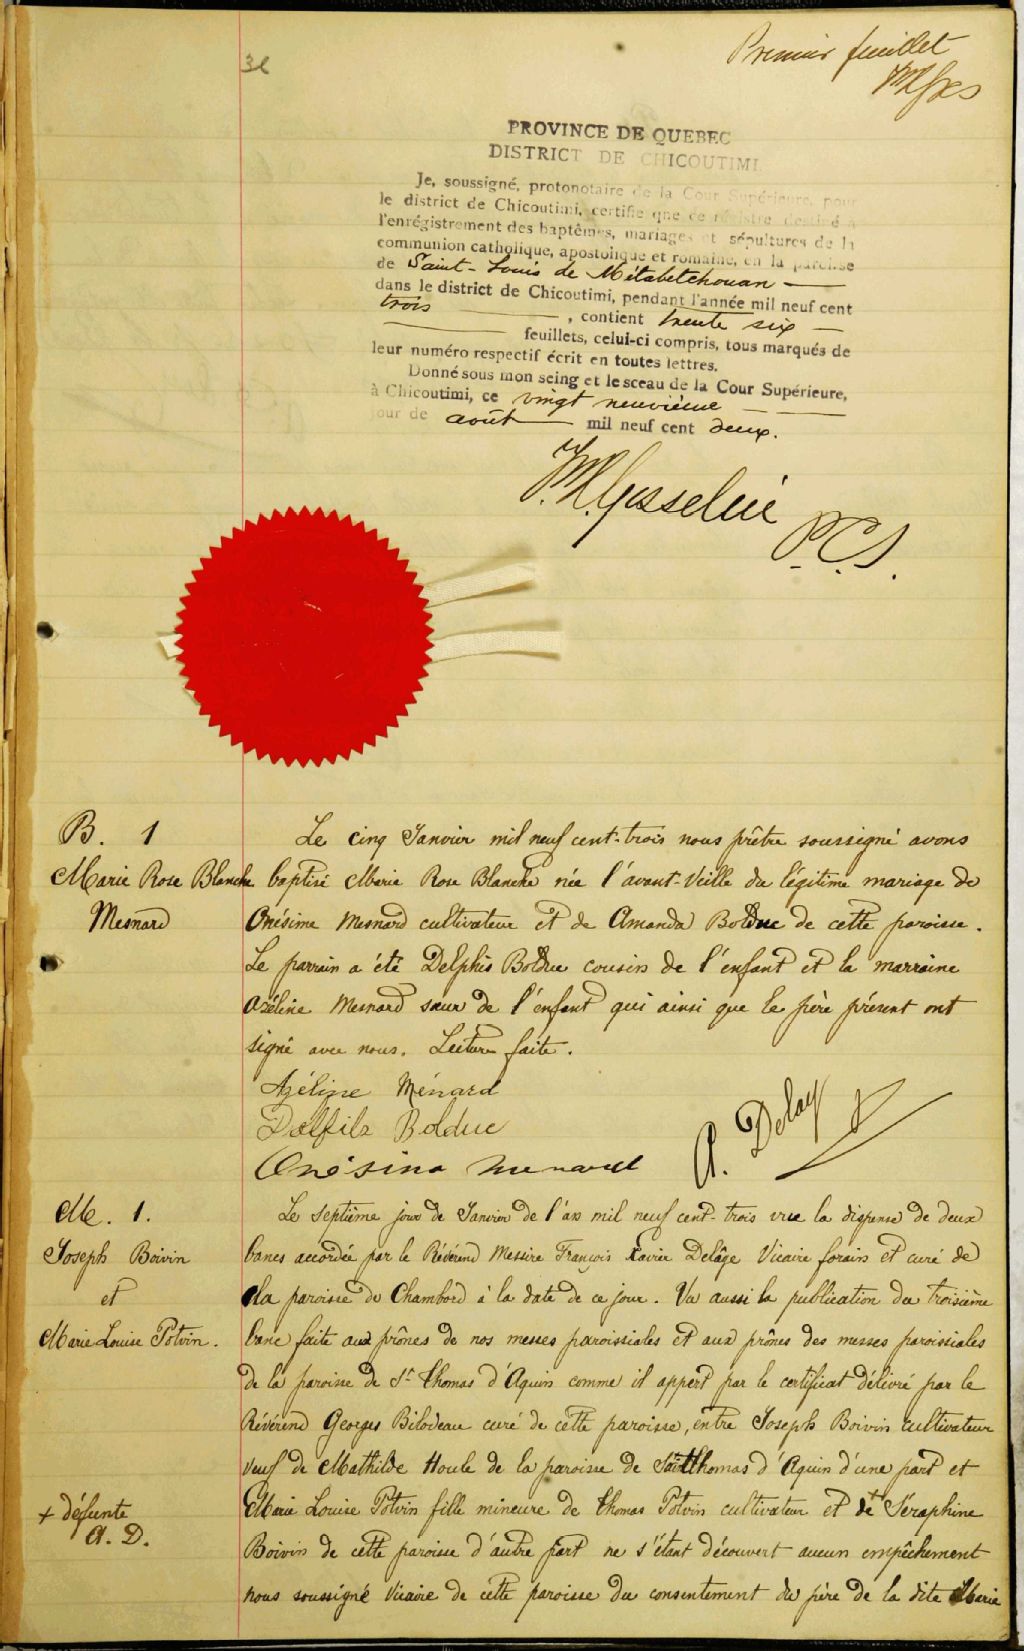 Premier feuillet
PROVINCE DE QUEBEC
DISTRICT DE CHICOUTIMI
Je, soussigné, protonotaire de la Cour Supérieure, pour
le district de Chicoutimi, certifie que ce régistre destiné à
l'enrégistrement des baptêmes, mariages et sépultures de la
communion catholique, apostolique et romaine, en la paroisse
de Saint-Louis de Métabetchouan
dans le district de Chicoutimi, pendant l'année mil neuf cent
trois, contient trente six
feuillets, celui-ci compris, tous marqués de
leur numéro respectif écrit en toutes lettres.
Donné sous mon seing et le sceau de la Cour Supérieure,
à Chicoutimi, ce vingt neuvième
jour de août mil neuf cent deux.
Gosselin
P.C.S.
B. 1
Marie Rose Blanche
Mesnard
Le cinq Janvier mil neuf cent-trois nous prêtre soussigné avons
baptisé Marie Rose Blanche née l'avant-Veille du légitime mariage de
Onésime Mesnard cultivateur et de Amanda Bolduc de cette paroisse.
Le parrain a été Delphis Bolduc cousin de l'enfant et la marraine
Azéline Mesnard sœur de l'enfant qui ainsi que le père présent ont
signé avec nous. Lecture faite.
Azéline Ménard
Delfils Bolduc
Onésime Menard
A. Delay
M. 1.
Joseph Boivin
et
Marie Louise Potvin.
Le septième jour de Janvier de l'an mil neuf cent-trois vue la dispense de deux
bancs accordée par le Révérend Messire François Xavier Delâge Vicaire forain et curé de
la paroisse de Chambord à la date de ce jour. Vu aussi la publication du troisième
banc faite aux prônes de nos messes paroissiales et aux prônes des messes paroissiales
de la paroisse de St Thomas d'Aquin comme il appert par le certificat délivré par le
Révérend Georges Bilodeau curé de cette paroisse, entre Joseph Boivin cultivateur
veuf de Mathilde Houle de la paroisse de Saint Thomas d'Aquin d'une part et
Marie Louise Potvin fille mineure de Thomas Potvin cultivateur et de + Séraphine
+ défunte
A. D.
Boivin de cette paroisse d'autre part ne s'étant découvert aucun empêchement
nous soussigné Vicaire de cette paroisse du consentement du père de la dite Marie